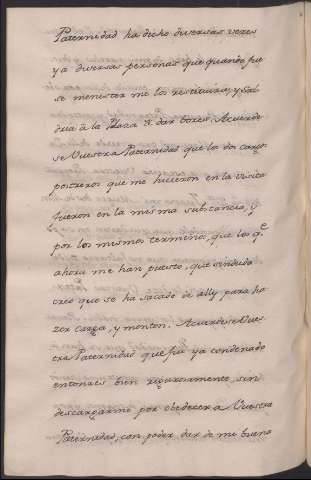 Paternidad ha dicho diversas vezes
ya diversas personas que quando fue
se menester me los restituirá, y sal
dria á la Plaza á dar vozes. Acuerde
se Vuestra Paternidad que los dos cargos
postreros que me hicieron en la visita
fueron en la misma substancia, y
por los mismos terminos, que los q.e
ahora me han puesto, que sin duda
creo que se ha sacado de ally para ha
zer carga, y monton. Acuerdese Vues
tra Paternidad que fui ya condenado
entonces bien rigurosamente, sin
descargarme por obedecer a Vuestra
Paternidad, con poder dar de mi bueno